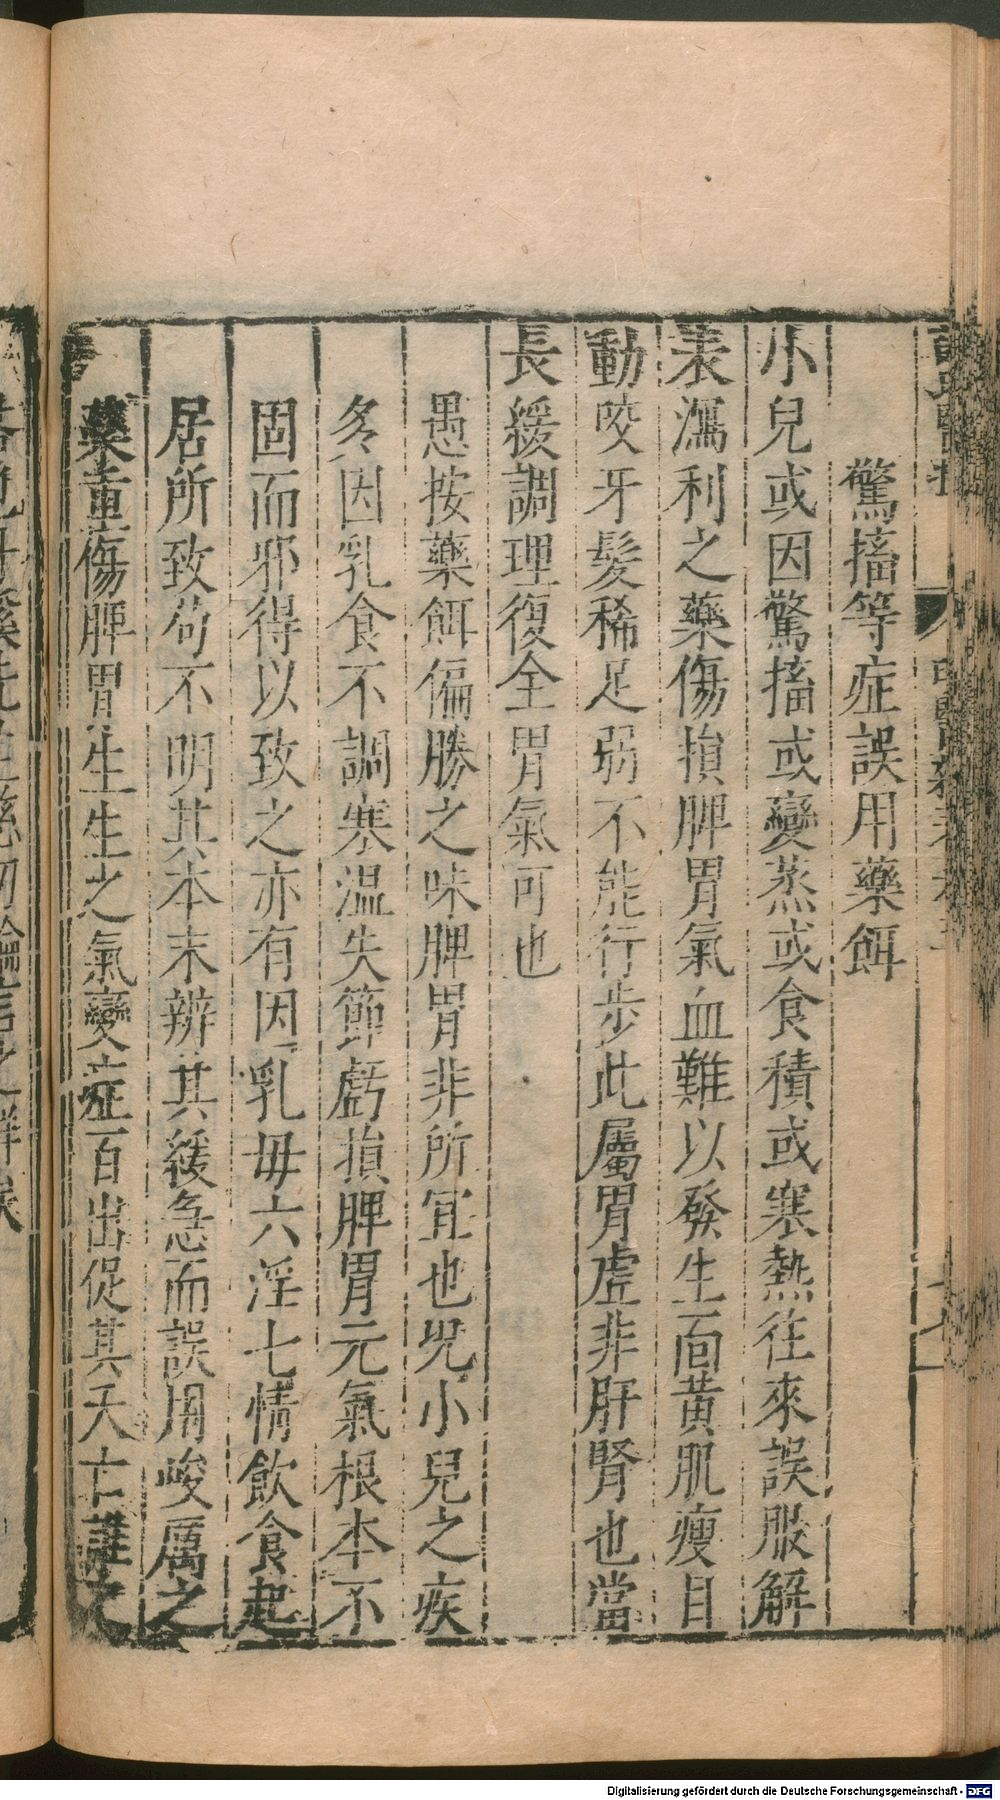 驚搐等症誤用藥餌
小兒或因驚搐或變蒸或食積或寒熱往來誤服解
表瀉利之藥傷損脾胃氣血難以發生面黃肌瘦目
動咬牙髮稀足弱不能行步此屬胃虛非肝腎也當
長緩調理復全胃氣可也
愚按藥餌偏勝之味脾胃非所宜也况小兒之疾
多因乳食不調寒温失節虧損脾胃元氣根本不
固而邪得以致之亦有因乳毋六淫七情飲食起
居所致苟不明其本末辨其緩急而誤用峻厲之
藥重傷脾胃生生之氣變症百出促其夭亡誰之
Digitalisierung gefördert durch die Deutsche Forschungsgemeinschaft - DFG